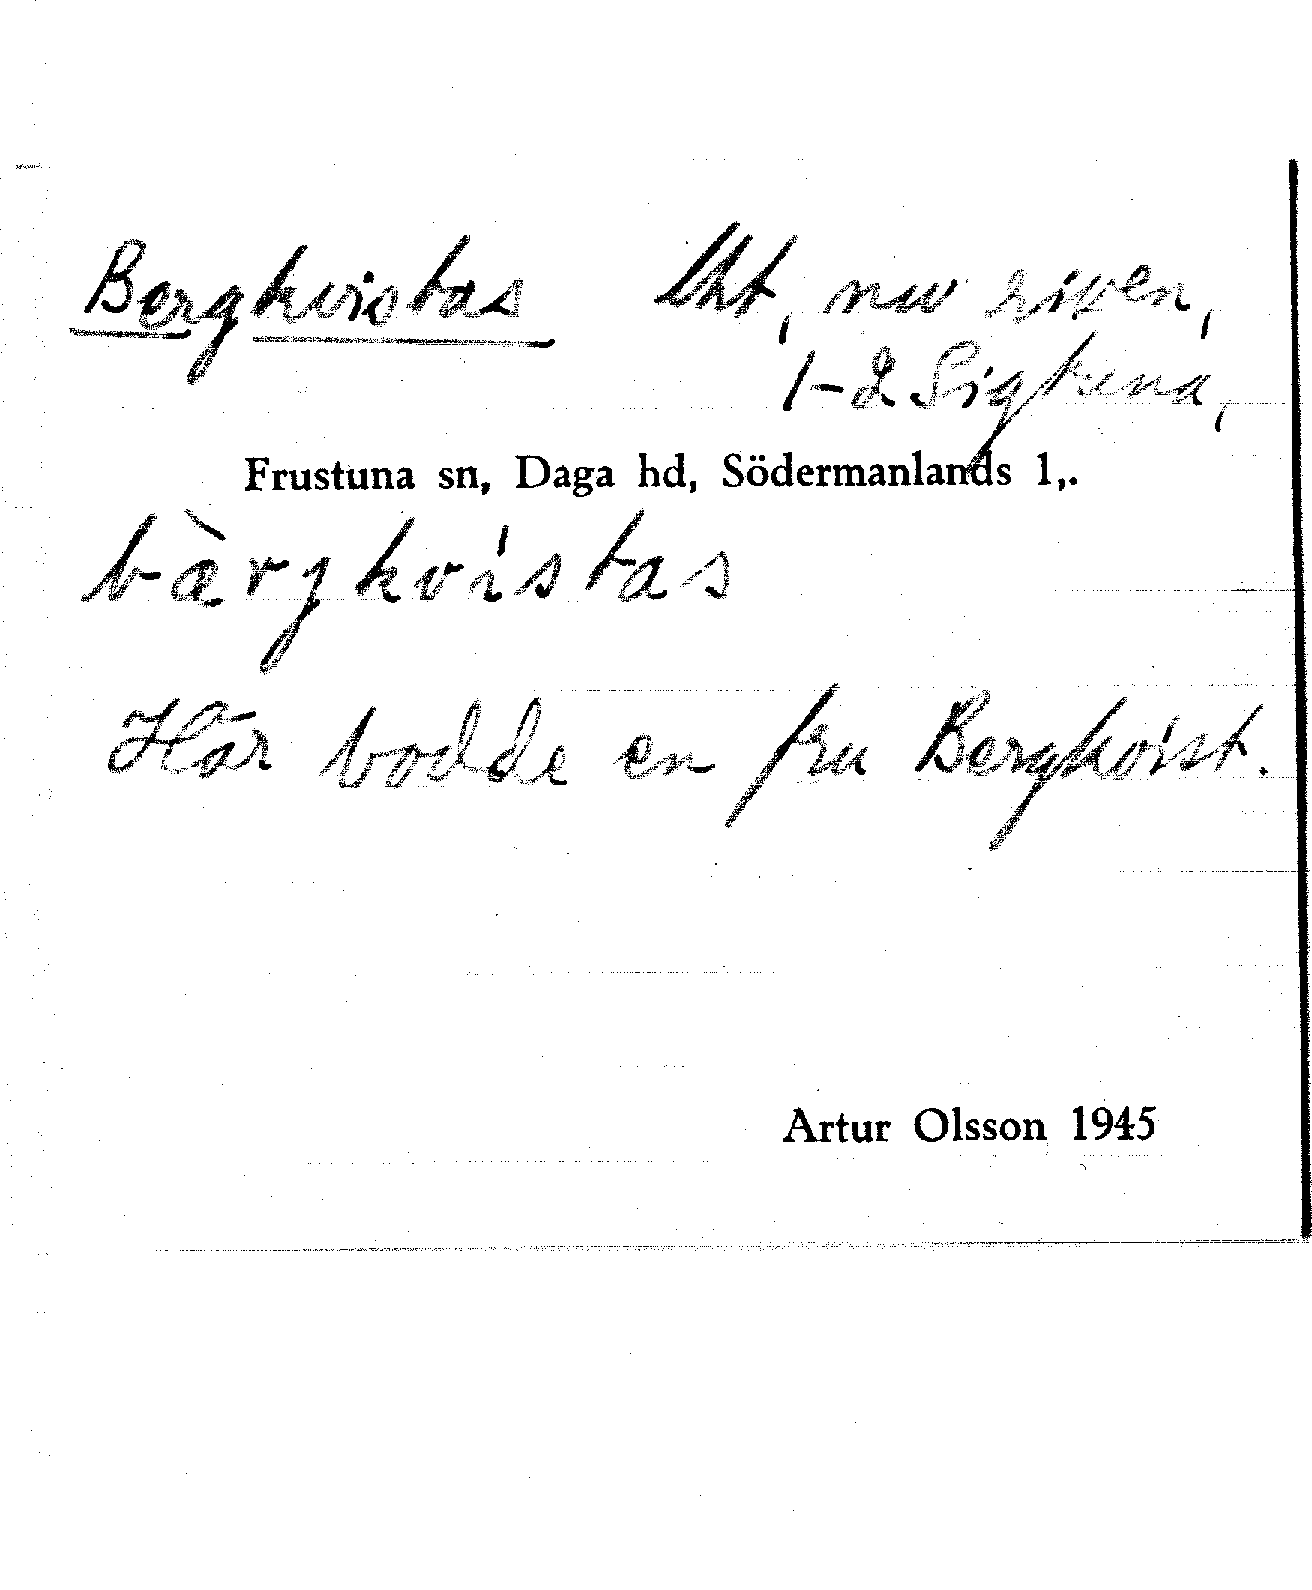 Bergkvistas lht, nu riven,
1-2 Sigtuna,
Frustuna sn, Daga hd, Södermanlands l,.
bàrgkvistas
Här bodde en fru Bergkvist.
Artur Olsson 1945